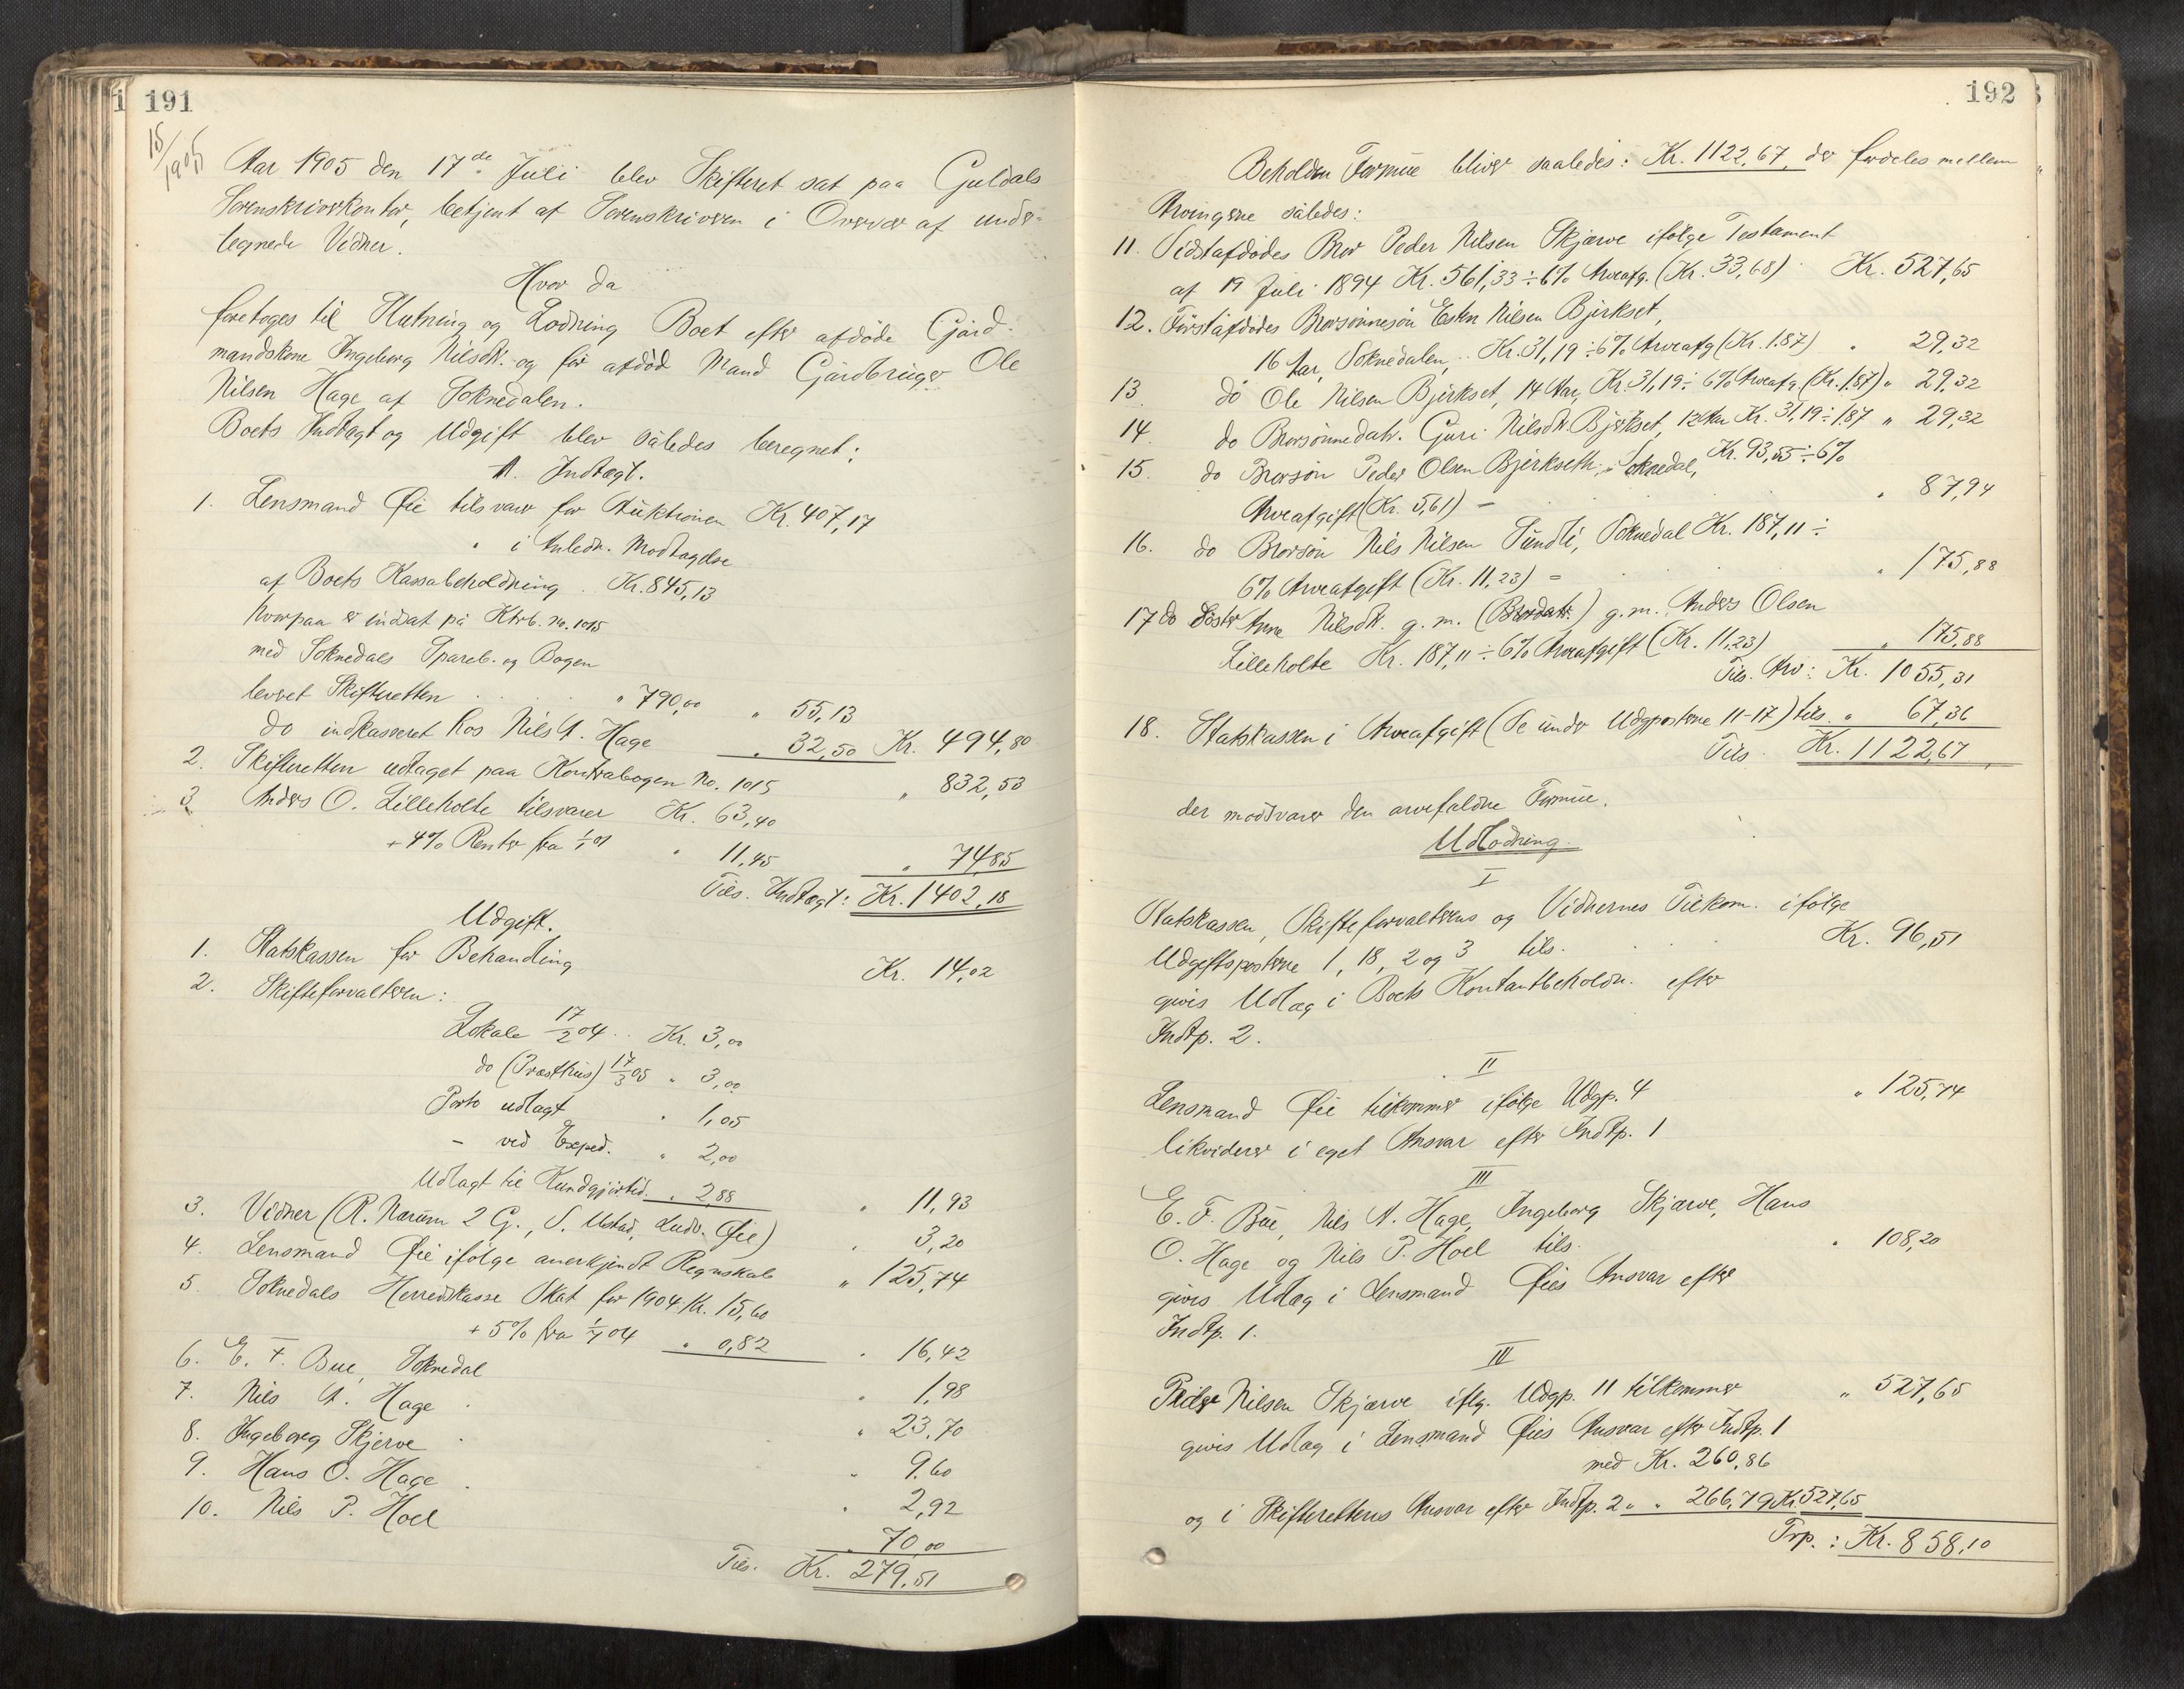 191
15/1905
Aar 1905 den 17de Juli blev Skifteret sat paa Guldals
Sorenskriverkontor, betjent af Sorenskriveren i Overvær af under-
tegnede Vidner.
Hvor da
foretoges til Slutning og Lodning Boet efter afdøde Gård-
mandskone Ingeborg Nilsdtr. og før afdød Mand Gårdbruger Ole
Nilsen Hage af Soknedalen.
Boets Indtægt og Udgift blev således beregnet:
A. Indtægt.
1. Lensmand Øie tilsvarer for Auktionen Kr. 407,17
" i Anledn. Modtagelse
af Boets Kassabeholdning . Kr. 845,13
hvorpaa er indsat på Ktrb. no. 1015
med Soknedals Spareb. og Bogen
leveret Skifteretten . . . . " 790,00 " 55,13
do indkasseret hos Nils A. Hage " 32,50 Kr. 494,80
2. Skifteretten udtaget paa Kontrabogen No. 1015 " 832,53
3. Anders O. Lilleholte tilsvarer Kr. 63,40
+ 4% Renter fra 1/1 01 " 11,45 " 74,85
Tils. Indtægt: Kr. 1402,18
Udgift.
1. Statskassen for Behandling Kr. 14,02
2. Skifteforvalteren:
Lokale 17/2 04 . . Kr. 3,00
do (Præsthus) 17/3 05 " 3,00
Porto udlagt " 1,05
- ved Exped. " 2,00
Udlagt til Kundgjørtid. " 2,88 " 11,93
3. Vidner (R. Narum 2 G., S. Ustad, Ludv. Øie) " 3,20
4. Lensmand Øie ifølge anerkjendt Regnskab " 125,74
5. Soknedals Herredskasse Skat for 1904 Kr. 15,60
+ 5% fra 1/7 04 " 0,82 " 16,42
6. E. F. Bue, Soknedal " 1,98
7. Nils A. Hage . " 23,70
8. Ingeborg Skjerve . " 9,60
9. Hans O. Hage . " 2,92
10. Nils P. Hoel " 70,00
Tils. Kr. 279,51
192
Beholden Formue bliver saaledes: Kr. 1122,67, der fordeles mellem
Arvingerne således:
11. Sidstafdødes Bror Peder Nilsen Skjærve ifølge Testament
af 19 Juli 1894 Kr. 561,33 ÷ 6% Arveafg. (Kr. 33,68) Kr. 527,65
12. Førstafdødes Brorsønnesøn Esten Nilsen Bjerkset,
16 Aar, Soknedalen, . Kr. 31,19 ÷ 6% Arveafg (Kr. 1.87) " 29,32
13. do Ole Nilsen Bjerkset, 14 Aar, Kr. 31,19 ÷ 6% Arveafg. (Kr. 1,87) " 29,32
14. do Brorsønnedatr. Guri Nilsdtr. Bjerkset, 12 Aar Kr. 31,19 ÷ 1,87 " 29,32
15. do Brorsøn Peder Olsen Bjerkseth, Soknedal, Kr. 93,55 ÷ 6%
Arveafgift (Kr. 5,61) – . . . " 87,94
16. do Brorsøn Nils Nilsen Sundli, Soknedal Kr. 187,11 ÷
6% Arveafgift (Kr. 11,23) = . . " 175,88
17 do Søster Anne Nilsdtr. g. m. (Brordatr.) g. m. Anders Olsen
Lilleholte Kr. 187,11 ÷ 6% Arveafgift (Kr. 11,23) " 175,88
Tils. Arv: Kr. 1055,31
18. Statskassen i Arveafgift (Se under Udgposterne 11-17) tils. " 67,36
Tils. Kr. 1122,67
der modsvarer den arvefaldne Formue.
Udlodning.
I
Statskassen, Skifteforvalterens og Vidnernes Tilkom. ifølge
Udgiftsposterne 1, 18, 2 og 3 tils. . . Kr. 96,51
gives Udlæg i Boets Kontantbeholdn. efter
Indtp. 2.
II
Lensmand Øie tilkommer ifølge Udgp. 4 " 125,74
likviderer i eget Ansvar efter Indtp. 1
III
E. F. Bue, Nils A. Hage, Ingeborg Skjærve, Hans
O. Hage og Nils P. Hoel tils. " 108,20
gives Udlæg i Lensmand Øies Ansvar efter
Indtp. 1.
IV
Peder Nilsen Skjærve iflg. Udgp. 11 tilkommer " 527,65
gives Udlæg i Lensmand Øies Ansvar efter Indtp. 1
med Kr. 260,86
og i Skifterettens Ansvar efter Indtp. 2 " " 266,79 Kr. 527,65
Trp. : Kr. 858,10